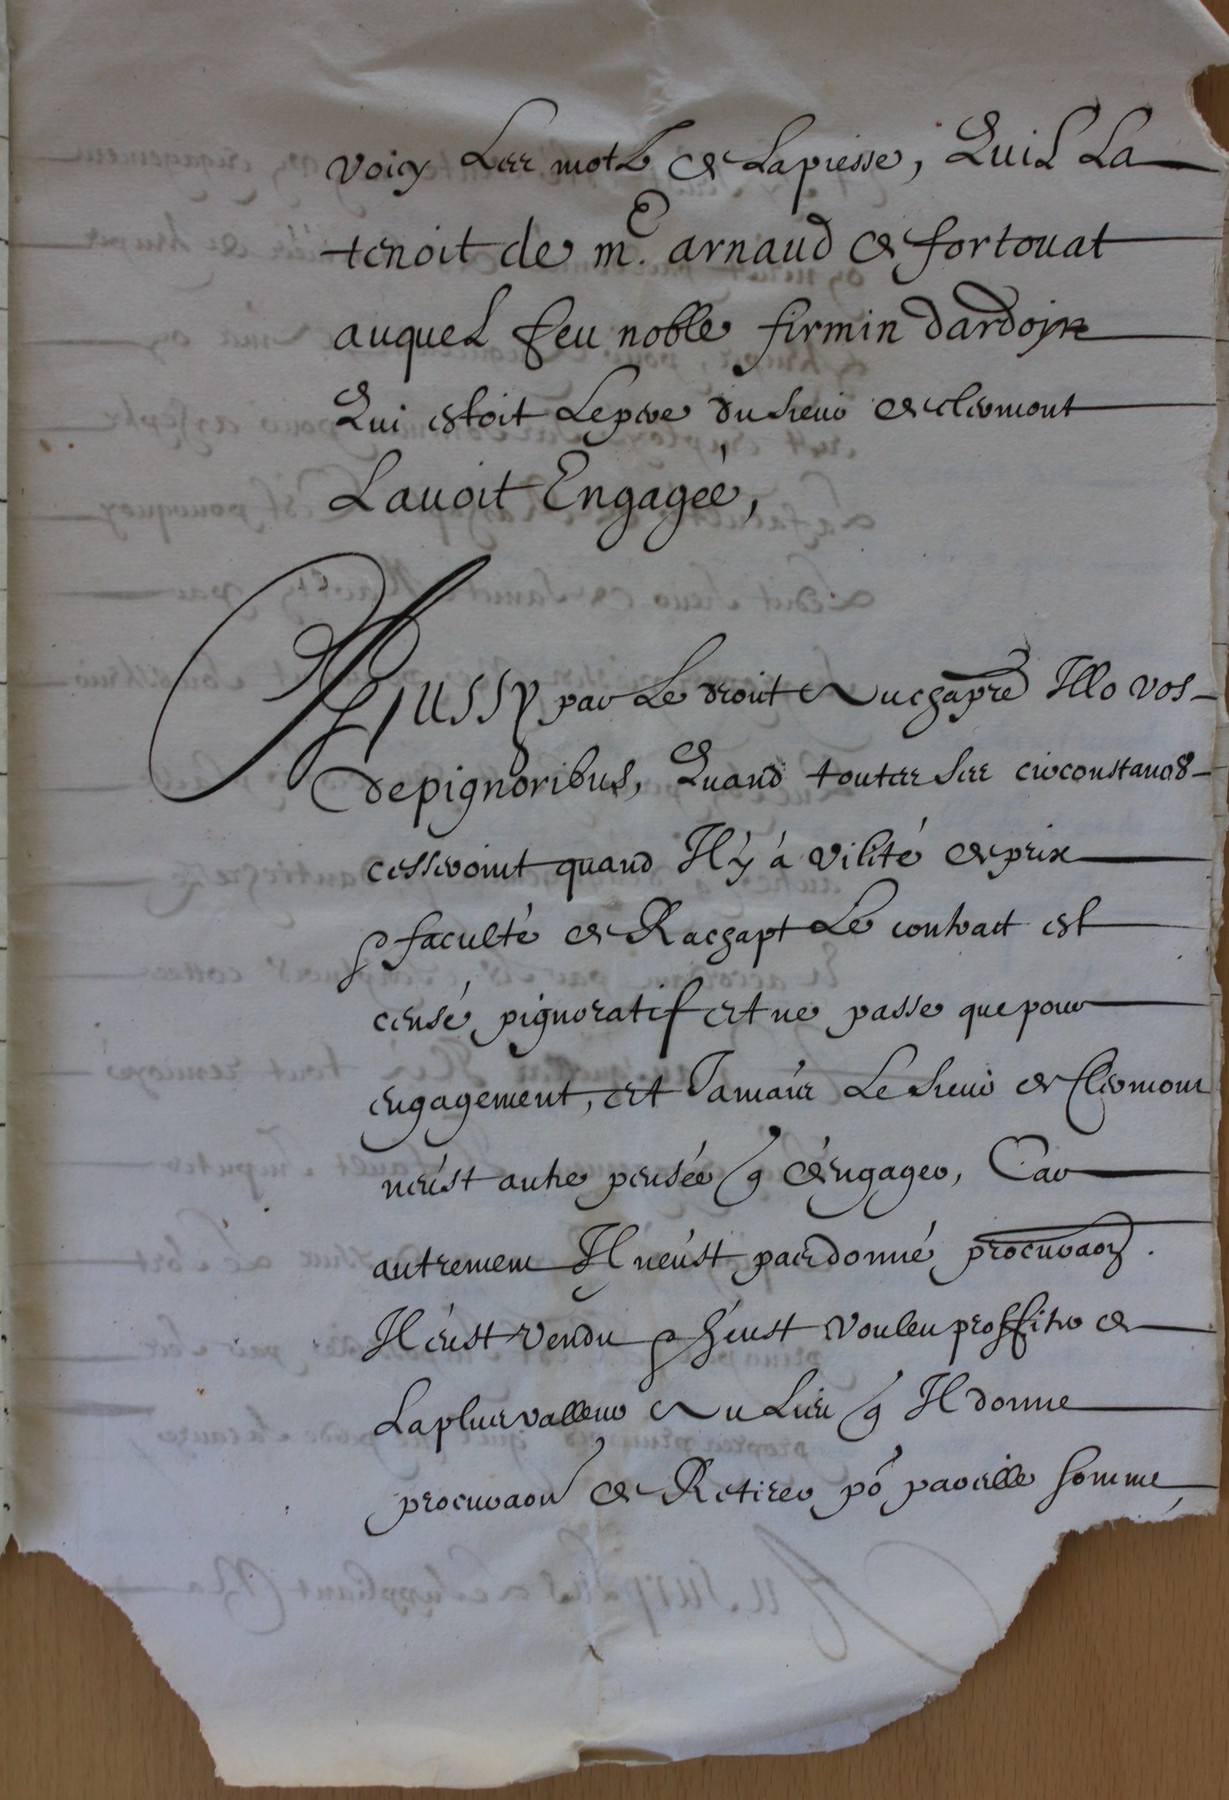 voicy Les motz de La piesse, Quil La
tenoit de me. arnaud de fortouat
auquel feu noble firmin dardoyn
Qui estoit Le pere du sieur de clermont
Lauoit Engageé,
Aussy par Le droit au chapre Illo vos
de pignoribus, Quand toutes ses circonstances
cesseroint quand Il y á vilité de prix
& faculté de Rachapt Le contract est
censé pignoratif et ne passe que pour
engagement, et Jamais Le sieur de Clermont
neust autre pensée q dengager, Car
autrement Il neust pas donné procuraon.
Il eust vendu & heust vouleu proffiter de
La plus valleur au Lieu q Il donne
procuraon de Retirer po pareille somme,